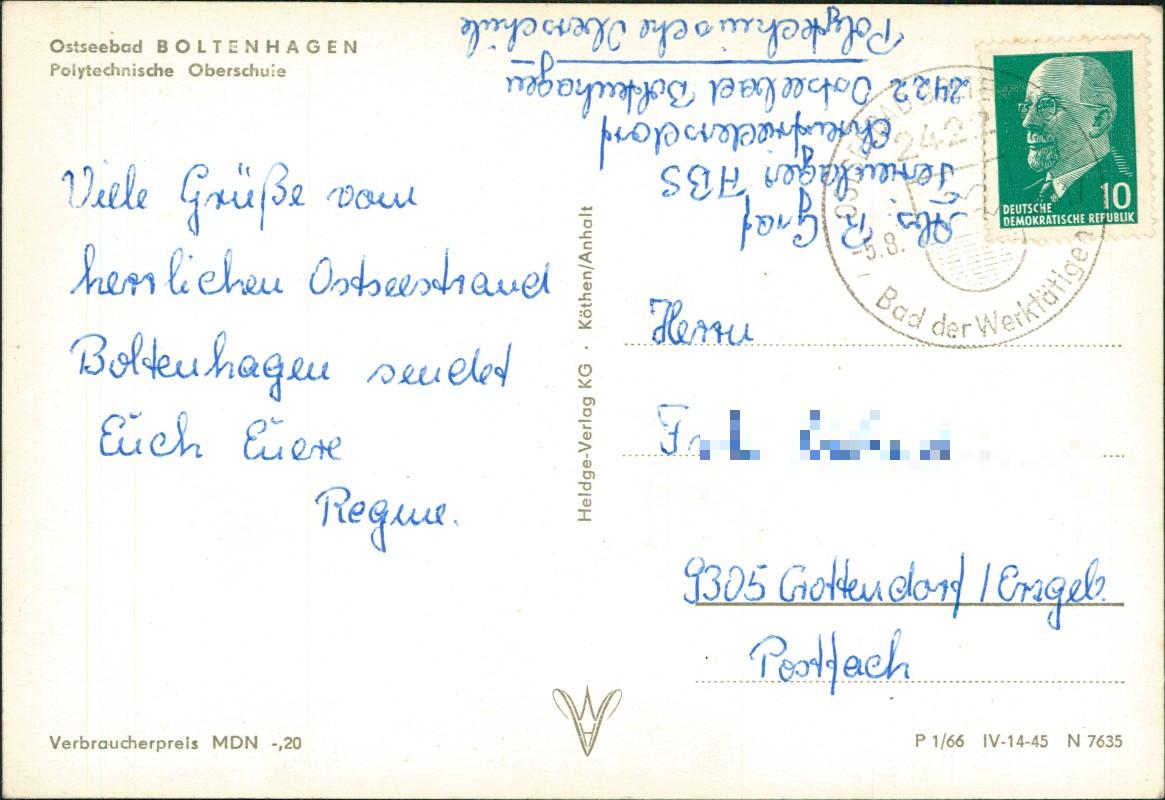 Ostseebad BOLTENHAGEN
Polytechnische Oberschule
Viele Grüße vom
herrlichen Ostseestrand
Boltenhagen sendet
Euch Euere
Regine.
Verbraucherpreis MDN -,20
Heldge-Verlag KG · Köthen/Anhalt
Abs. R. Graf
Ferienlager HBS
Ehrenfriedersdorf
2422 Ostseebad Boltenhagen
Polytechnische Oberschule
2422
-5.8.
Bad der Werktätigen
10
DEUTSCHE
DEMOKRATISCHE REPUBLIK
Herrn
9305 Crottendorf / Erzgeb.
Postfach
P 1/66 IV-14-45 N 7635